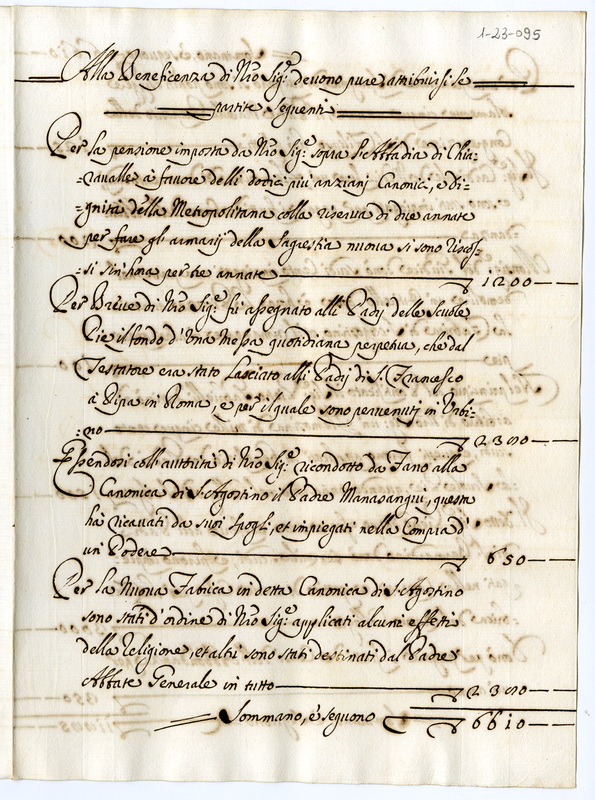 1-23-095
Alla Beneficenza di Nr̃o Sig.re devono pure attribuirsi le
partite seguenti
Per la pensione imposta da Nr̃o Sig.re sopra l'Abbadia di Chia:
:ravalle à favore delli dodici più anziani Canonici, e di:
:gnità della Metropolitana colla riserva di due annate
per fare gli armarij della Sagrestia nuova si sono riscos:
:si sin'hora per tre annate 1200
Per Breve di Nr̃o Sig.re fù assegnato alli Padri delle Scuole
Pie il fondo d'una Messa quotidiana perpetua, che dal
Testatore era stato lasciato alli Padri di S. Francesco
à Ripa in Roma, e per il quale sono pervenuti in Urbi:
:no
Essendosi coll'autorità di Nr̃o Sig.re ricondotto da Fano alla
Canonica di S. Agostino il Padre Manasangui, questa
hà ricavati da suoi spogli, et impiegati nella Compra d'
un Podere 650
Per la Nuova Fabrica in detta Canonica di S. Agostino
sono stati d'ordine di Nr̃o Sig.re applicati alcuni effetti
della Religione, et altri sono stati destinati dal Padre
Abbate Generale in tutto
Sommano, e seguono 6610